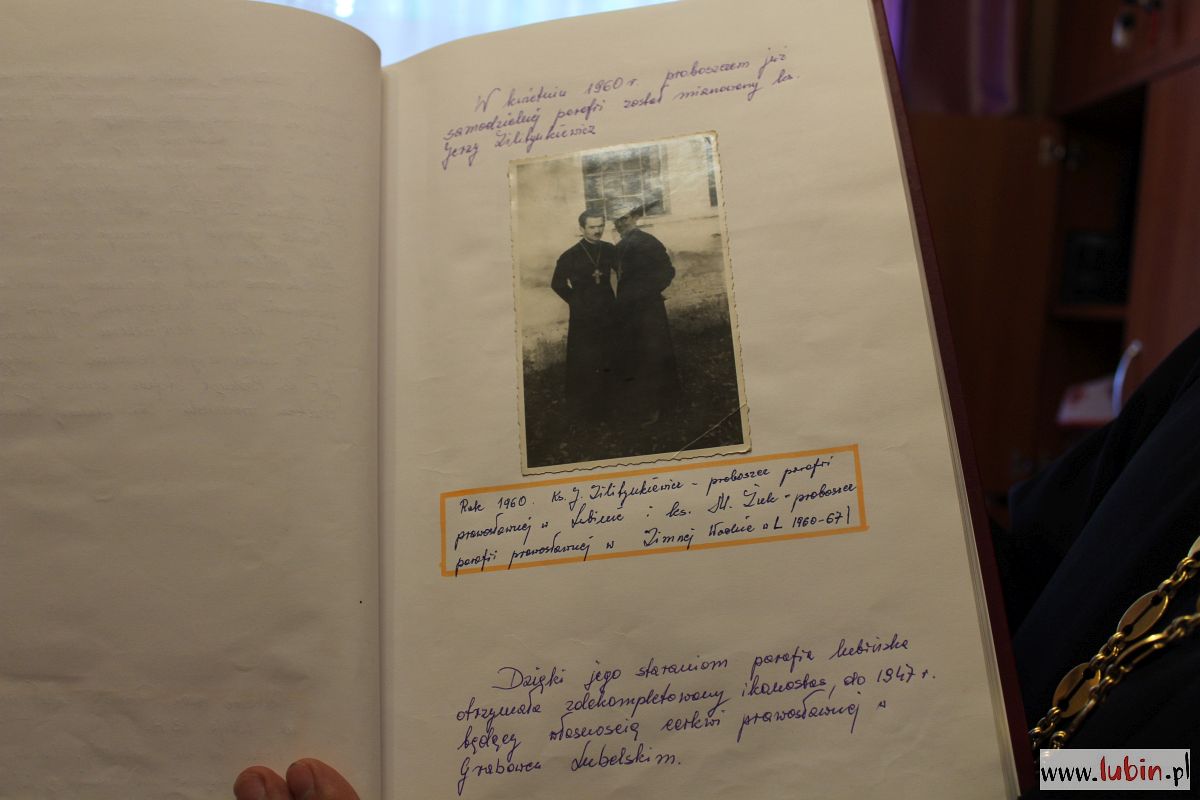 W kwietniu 1960 r. proboszczem już
samodzielnej parafii został mianowany ks.
Jerzy
Rok 1960. Ks. J. - proboszcz parafii
prawosławnej w Lubinie i ks. M. Żuk - proboszcz
parafii prawosławnej w Zimnej Wodzie L 1960-67)
Dzięki jego staraniom parafia lubińska
otrzymała zdekompletowany ikonostas, do 1947 r.
będący własnością cerkwi prawosławnej w
Grabowcu Lubelskim.
www.lubin.pl